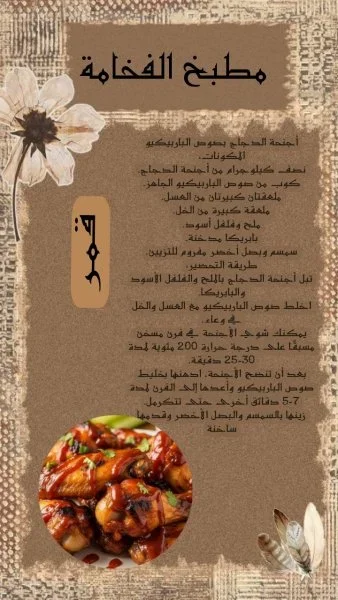 مطبخ الفخامة
أجنحة الدجاج بصوص الباربيكيو
المكونات:
نصف كيلوجرام من أجنحة الدجاج.
كوب من صوص الباربيكيو الجاهز.
ملعقتان كبيرتان من العسل.
ملعقة كبيرة من الخل.
ملح وفلفل أسود.
بابريكا مدخنة.
سمسم وبصل أخضر مفروم للتزيين.
طريقة التحضير:
تبل أجنحة الدجاج بالملح والفلفل الأسود
والبابريكا.
اخلط صوص الباربيكيو مع العسل والخل
في وعاء.
يمكنك شوي الأجنحة في فرن مسخن
مسبقًا على درجة حرارة 200 مئوية لمدة
25-30 دقيقة.
بعد أن تنضج الأجنحة، ادهنها بخليط
صوص الباربيكيو وأعدها إلى الفرن لمدة
5-7 دقائق أخرى حتى تتكرمل.
زينها بالسمسم والبصل الأخضر وقدمها
ساخنة
قمر